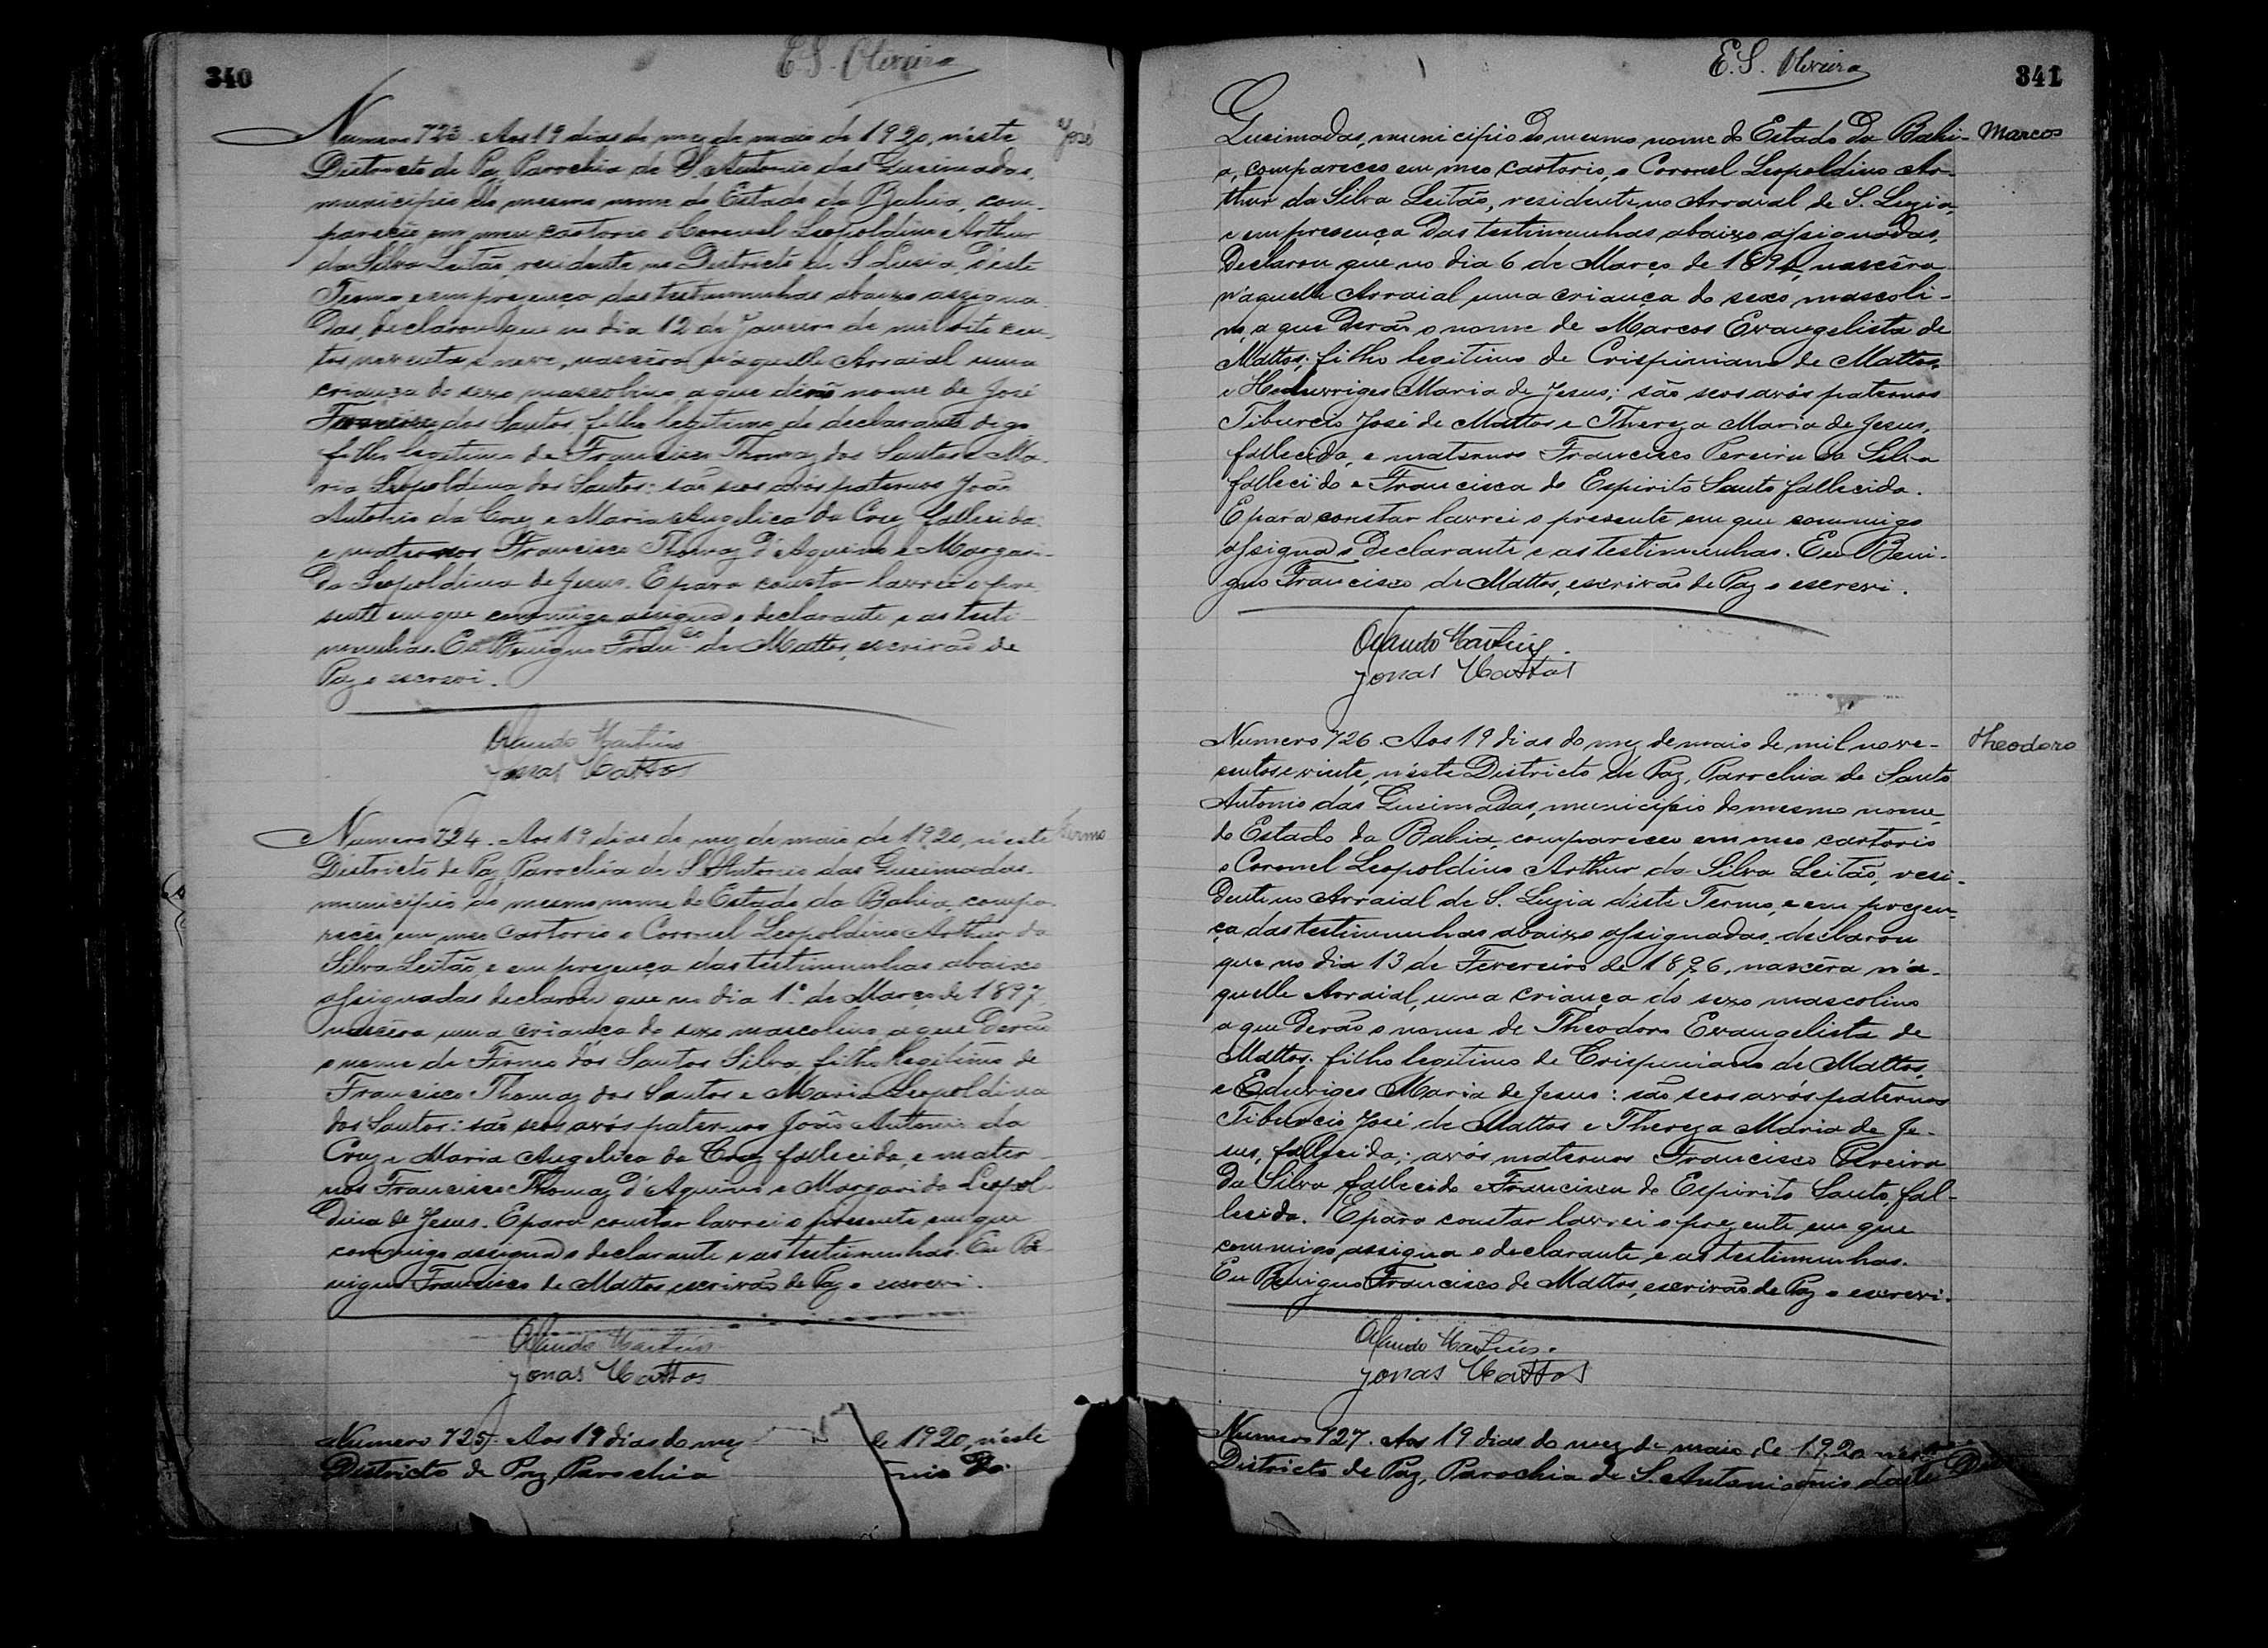 340
E. S. Oliveira
José
Numero 723. Aos 19 dias do mez de maio de 1920, n'éste
Districto de Paz, Parochia de S. Antonio das Queimadas,
municipio do mesmo nome do Estado da Bahia, com-
pareceu em meu cartorio o Coronel Leopoldino Arthur
da Silva Leitão, residente no Districto de S. Lusia, d'éste
Termo e em prezença das testimunhas abaixo assigna-
das, declarou que no dia 12 de Janeiro de mil oito cen-
tos noventa e nove, nascêra n'aquelle Arraial uma
criança do sexo mascolino a que derão nome de José
Francisco dos Santos, filho legitimo do declarante digo
filho legitimo de Francisco Thomaz dos Santos e Ma-
ria Leopoldina dos Santos: são seos avós paternos João
Antonio da Cruz e Maria Angelica da Cruz fallecida
e maternos Francisco Thomaz d'Aquino e Margari-
da Leopoldina de Jesus. E para constar lavrei o pre-
sente em que commigo assigna o declarante e as testi-
munhas. Eu Benigno Franco de Mattos, escrivão de
Paz o escrevi.
Jonas Mattos
Firmo
Numero 724. Aos 19 dias do mez de maio de 1920, n'éste
Districto de Paz, Parochia de S. Antonio das Queimadas,
municipio do mesmo nome do Estado da Bahia, compa-
receu em meu Cartorio o Coronel Leopoldino Arthur da
Silva Leitão, e em prezença das testimunhas abaixo
assignadas declarou que no dia 1º de Março de 1897,
nascêra uma criança do sexo mascolino, a que derão
o nome de Firmo dos Santos Silva filho legitimo de
Francisco Thomaz dos Santos e Maria Leopoldina
dos Santos: são seos avós paternos João Antonio da
Cruz e Maria Angelica da Cruz fallecida, e mater-
nos Francisco Thomaz d'Aquino e Margarida Leopol-
dina de Jesus. E para constar lavrei o presente em que
commigo assigna o declarante e as testimunhas. Eu Be-
nigno Francisco de Mattos, escrivão de Paz o escrevi.
Jonas Mattos
Numero 725. Aos 19 dias do mez de 1920, n'éste
Districto de Paz, Parochia
341
E. S. Oliveira
Marcos
Queimadas, municipio do mesmo nome do Estado da Bahi-
a, compareceo em meo cartorio, o Coronel Leopoldino Ar-
thur da Silva Leitão, residente no Arraial de S. Luzia,
e em presença das testimunhas abaixo assignadas,
Declarou que no dia 6 de Março de 189, nascêra
n'aquelle Arraial uma criança do sexo mascoli-
no, a que derão o nome de Marcos Evangelista de
Mattos; filho legitimo de Crispiniano de Mattos,
e Heduvriges Maria de Jesus; são seos avós paternos
Tiburcio José de Mattos e Thereza Maria de Jesus,
fallecida, e maternos Francisco Pereira da Silva
fallecido e Francisca do Espirito Santo fallecida.
E para constar lavrei o presente em que commigo
assigna o Declarante e as testimunhas. Eu Beni-
gno Francisco de Mattos, escrivão de Paz o escrevi.
Jonas Mattos
Theodoro
Numero 726. Aos 19 dias do mez de maio de mil nove-
centos e vinte, n'éste Districto de Paz, Parochia de Santo
Antonio das Queimadas, municipio do mesmo nome,
do Estado da Bahia, compareceo em meo cartorio
o Coronel Leopoldino Arthur da Silva Leitão, resi-
dente no Arraial de S. Luzia d'éste Termo, e em prezen-
ça das testimunhas abaixo assignadas, declarou
que no dia 13 de Fevereiro de 1896, nascêra n'a-
quelle Arraial, uma criança do sexo mascolino
a que derão o nome de Theodoro Evangelista de
Mattos: filho legitimo de Crispiniano de Mattos,
e Eduviges Maria de Jesus: são seos avós paternos
Tiburcio José de Mattos e Thereza Maria de Je-
sus, fallecida; avós maternos Francisco Pereira
da Silva fallecido e Francisca do Espirito Santo, fal-
lecida. E para constar lavrei o prezente em que
commigo assigna o declarante e as testimunhas.
Eu Benigno Francisco de Mattos, escrivão de Paz o escrevi.
Jonas Mattos
Numero 727. Aos 19 dias do mez de maio de 1920 n'éste
Districto de Paz, Parochia de S. Antonio